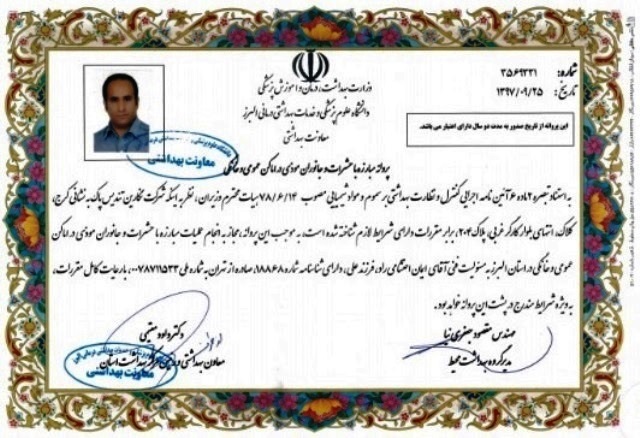 شماره: ۳۵۶۹۳۳۱
تاریخ: ۱۳۹۷/۰۹/۲۵
این پروانه از تاریخ صدور به مدت دو سال دارای اعتبار می باشد.
وزارت بهداشت، درمان و آموزش پزشکی
دانشگاه علوم پزشکی و خدمات بهداشتی درمانی البرز
معاونت بهداشتی
معاونت بهداشتی
پروانه مبارزه با حشرات و جانوران موذی در اماکن عمومی و خانگی
به استناد تبصره ۲ ماده ۶ آئین نامه اجرایی کنترل و نظارت بهداشتی بر سموم و مواد شیمیایی مصوب ۷۸/۶/۱۴ هیات محترم وزیران، نظر به اینکه شرکت مخازن تندیس پاک به نشانی کرج،
کلاک، انتهای بلوار کارگر غربی، پلاک ۲۰۴، برابر مقررات دارای شرایط لازم شناخته شده است، به موجب این پروانه، مجاز به انجام عملیات مبارزه با حشرات و جانوران موذی در اماکن
عمومی و خانگی در استان البرز به مسئولیت فنی آقای ایمان احتشامی راد، فرزند علی، دارای شناسنامه شماره ۱۸۸۶۸، صادره از تهران به شماره ملی ۰۰۷۸۷۱۱۵۳۳، با رعایت کامل مقررات،
به ویژه شرایط مندرج در پشت این پروانه خواهد بود.
مهندس مقصود جعفری نیا
مدیر گروه بهداشت محیط
دکتر داود
معاون بهداشتی و رئیس مرکز بهداشت استان
معاونت بهداشتی